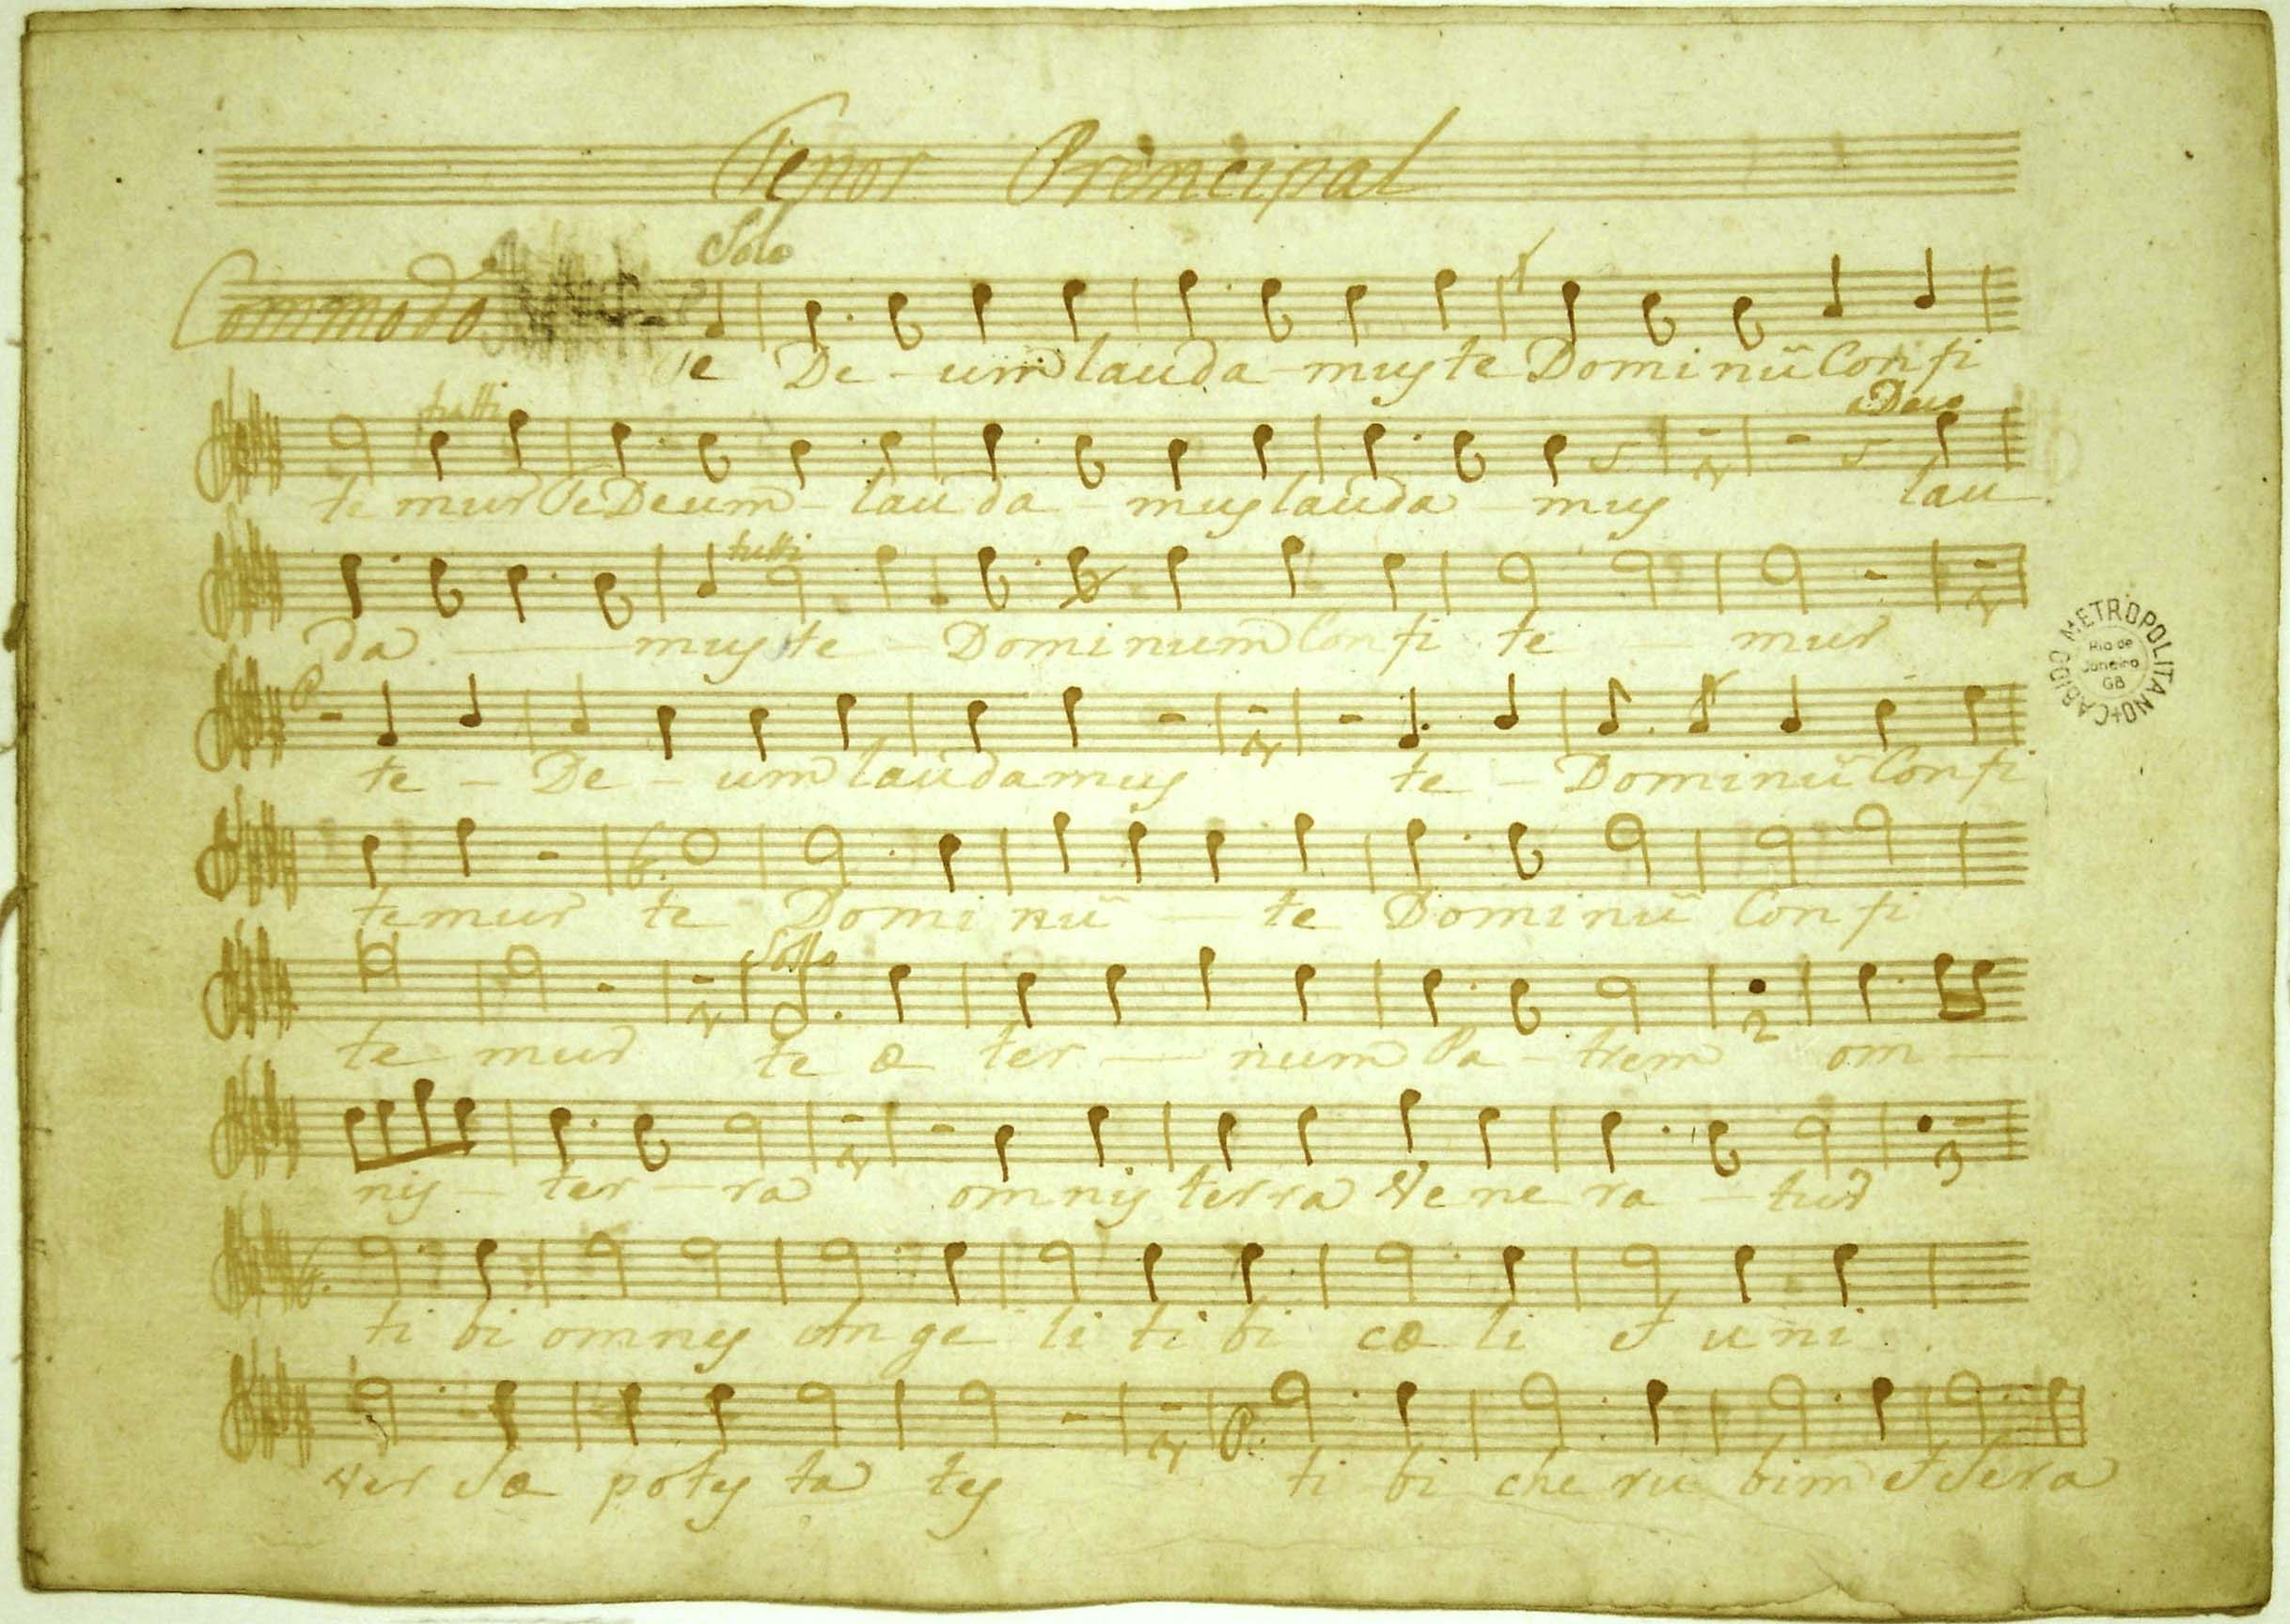 Tenor Principal
Solo
Commodo
Te De - um lauda - mus te Dominũ Confi
tutti
Duo
te mur Te Deum - lau da - mus lauda - mus lau
tutti
da - mus te - Dominum Confi te - mur
P
te - De - um laudamus te - Dominũ Confi
f.
temur te Dominũ - te Dominũ Confi
Sollo
te mur te æ ter - num Pa - trem 2 om -
nis - ter - ra omnis terra Vene ra - tur 3
f.
ti bi omnes An ge li ti bi cæ li et uni
P.
ver sæ potes ta tes ti bi che ru bim et Sera
CABIDO METROPOLITANO
Rio de
Janeiro
GB